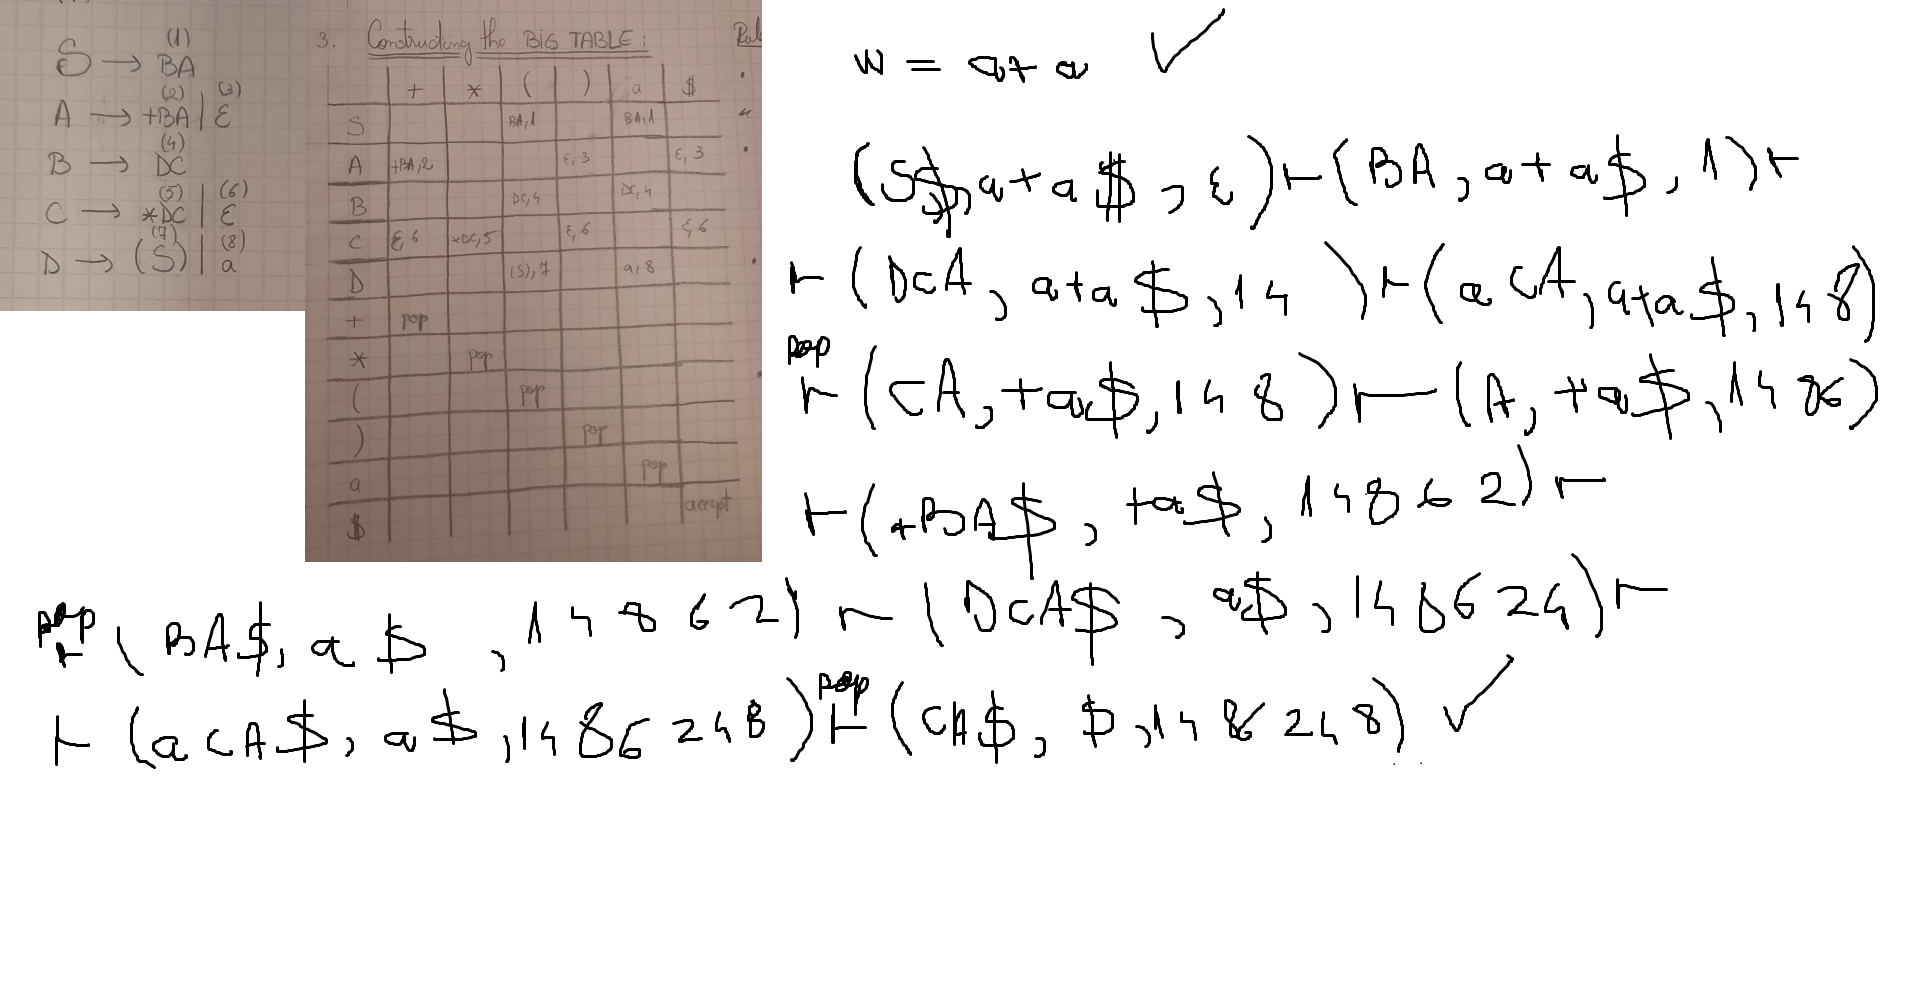 (1)
S → BA
(2) (3)
A → +BA | ε
(4)
B → DC
(5) (6)
C → *DC | ε
(7) (8)
D → (S) | a
3. Constructing the BIG TABLE:
+ * ( ) a $
S BA,1 BA,1
A +BA,2 ε,3 ε,3
B DC,4 DC,4
C ε,6 *DC,5 ε,6 ε,6
D (S),7 a,8
+ pop
* pop
( pop
) pop
a pop
$ accept
w = a+a ✓
(S$, a+a$, ε) ⊢ (BA, a+a$, 1) ⊢
⊢ (DCA, a+a$, 14) ⊢ (aCA, a+a$, 148)
pop
⊢ (CA, +a$, 148) ⊢ (A, +a$, 1486)
⊢ (+BA$, +a$, 14862) ⊢
pop
⊢ (BA$, a$, 14862) ⊢ (DCA$, a$, 148624) ⊢
pop
⊢ (aCA$, a$, 1486248) ⊢ (CA$, $, 1486248) ✓